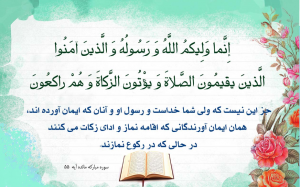 إِنَّما وَلِيكُمُ اللَّهُ وَ رَسُولُهُ وَ الَّذينَ آمَنُوا
الَّذينَ يقيمُونَ الصَّلاةَ وَ يؤْتُونَ الزَّكاةَ وَ هُمْ راكِعُونَ
جز این نیست که ولی شما خداست و رسول او و آنان که ایمان آورده اند،
همان ایمان آورندگانی که اقامه نماز و ادای زکات می کنند
در حالی که در رکوع نمازند.
سوره مبارکه مائده آیه ۵۵